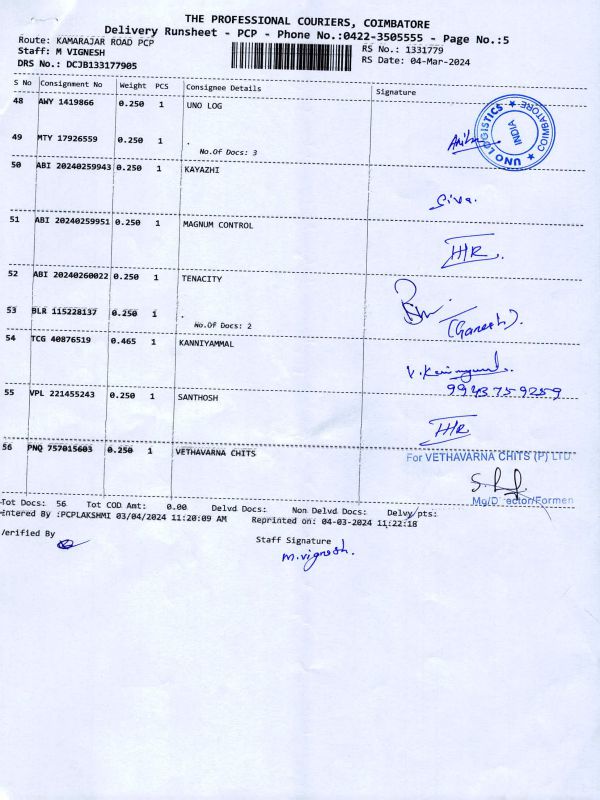 THE PROFESSIONAL COURIERS, COIMBATORE
Delivery Runsheet - PCP - Phone No.:0422-3505555 - Page No.:5
Route: KAMARAJAR ROAD PCP
RS No.: 1331779
Staff: M VIGNESH
RS Date: 04-Mar-2024
DRS No.: DCJB133177905
S No Consignment No Weight PCS Consignee Details Signature
48 AWY 1419866 0.250 1 UNO LOG
UNO LOGISTICS ★ COIMBATORE ★
INDIA
49 MTY 17926559 0.250 1 .
No.Of Docs: 3
50 ABI 20240259943 0.250 1 KAYAZHI
Siva.
51 ABI 20240259951 0.250 1 MAGNUM CONTROL
52 ABI 20240260022 0.250 1 TENACITY
53 BLR 115228137 0.250 1 .
(Ganesh).
No.Of Docs: 2
54 TCG 40876519 0.465 1 KANNIYAMMAL
9943759259
55 VPL 221455243 0.250 1 SANTHOSH
56 PNQ 757015603 0.250 1 VETHAVARNA CHITS
For VETHAVARNA CHITS (P) LTD.
Mg/Director/Formen
Tot Docs: 56 Tot COD Amt: 0.00 Delvd Docs: Non Delvd Docs: Delvy/pts:
Entered By :PCPLAKSHMI 03/04/2024 11:20:09 AM Reprinted on: 04-03-2024 11:22:18
Verified By
Staff Signature
M.Vignesh.